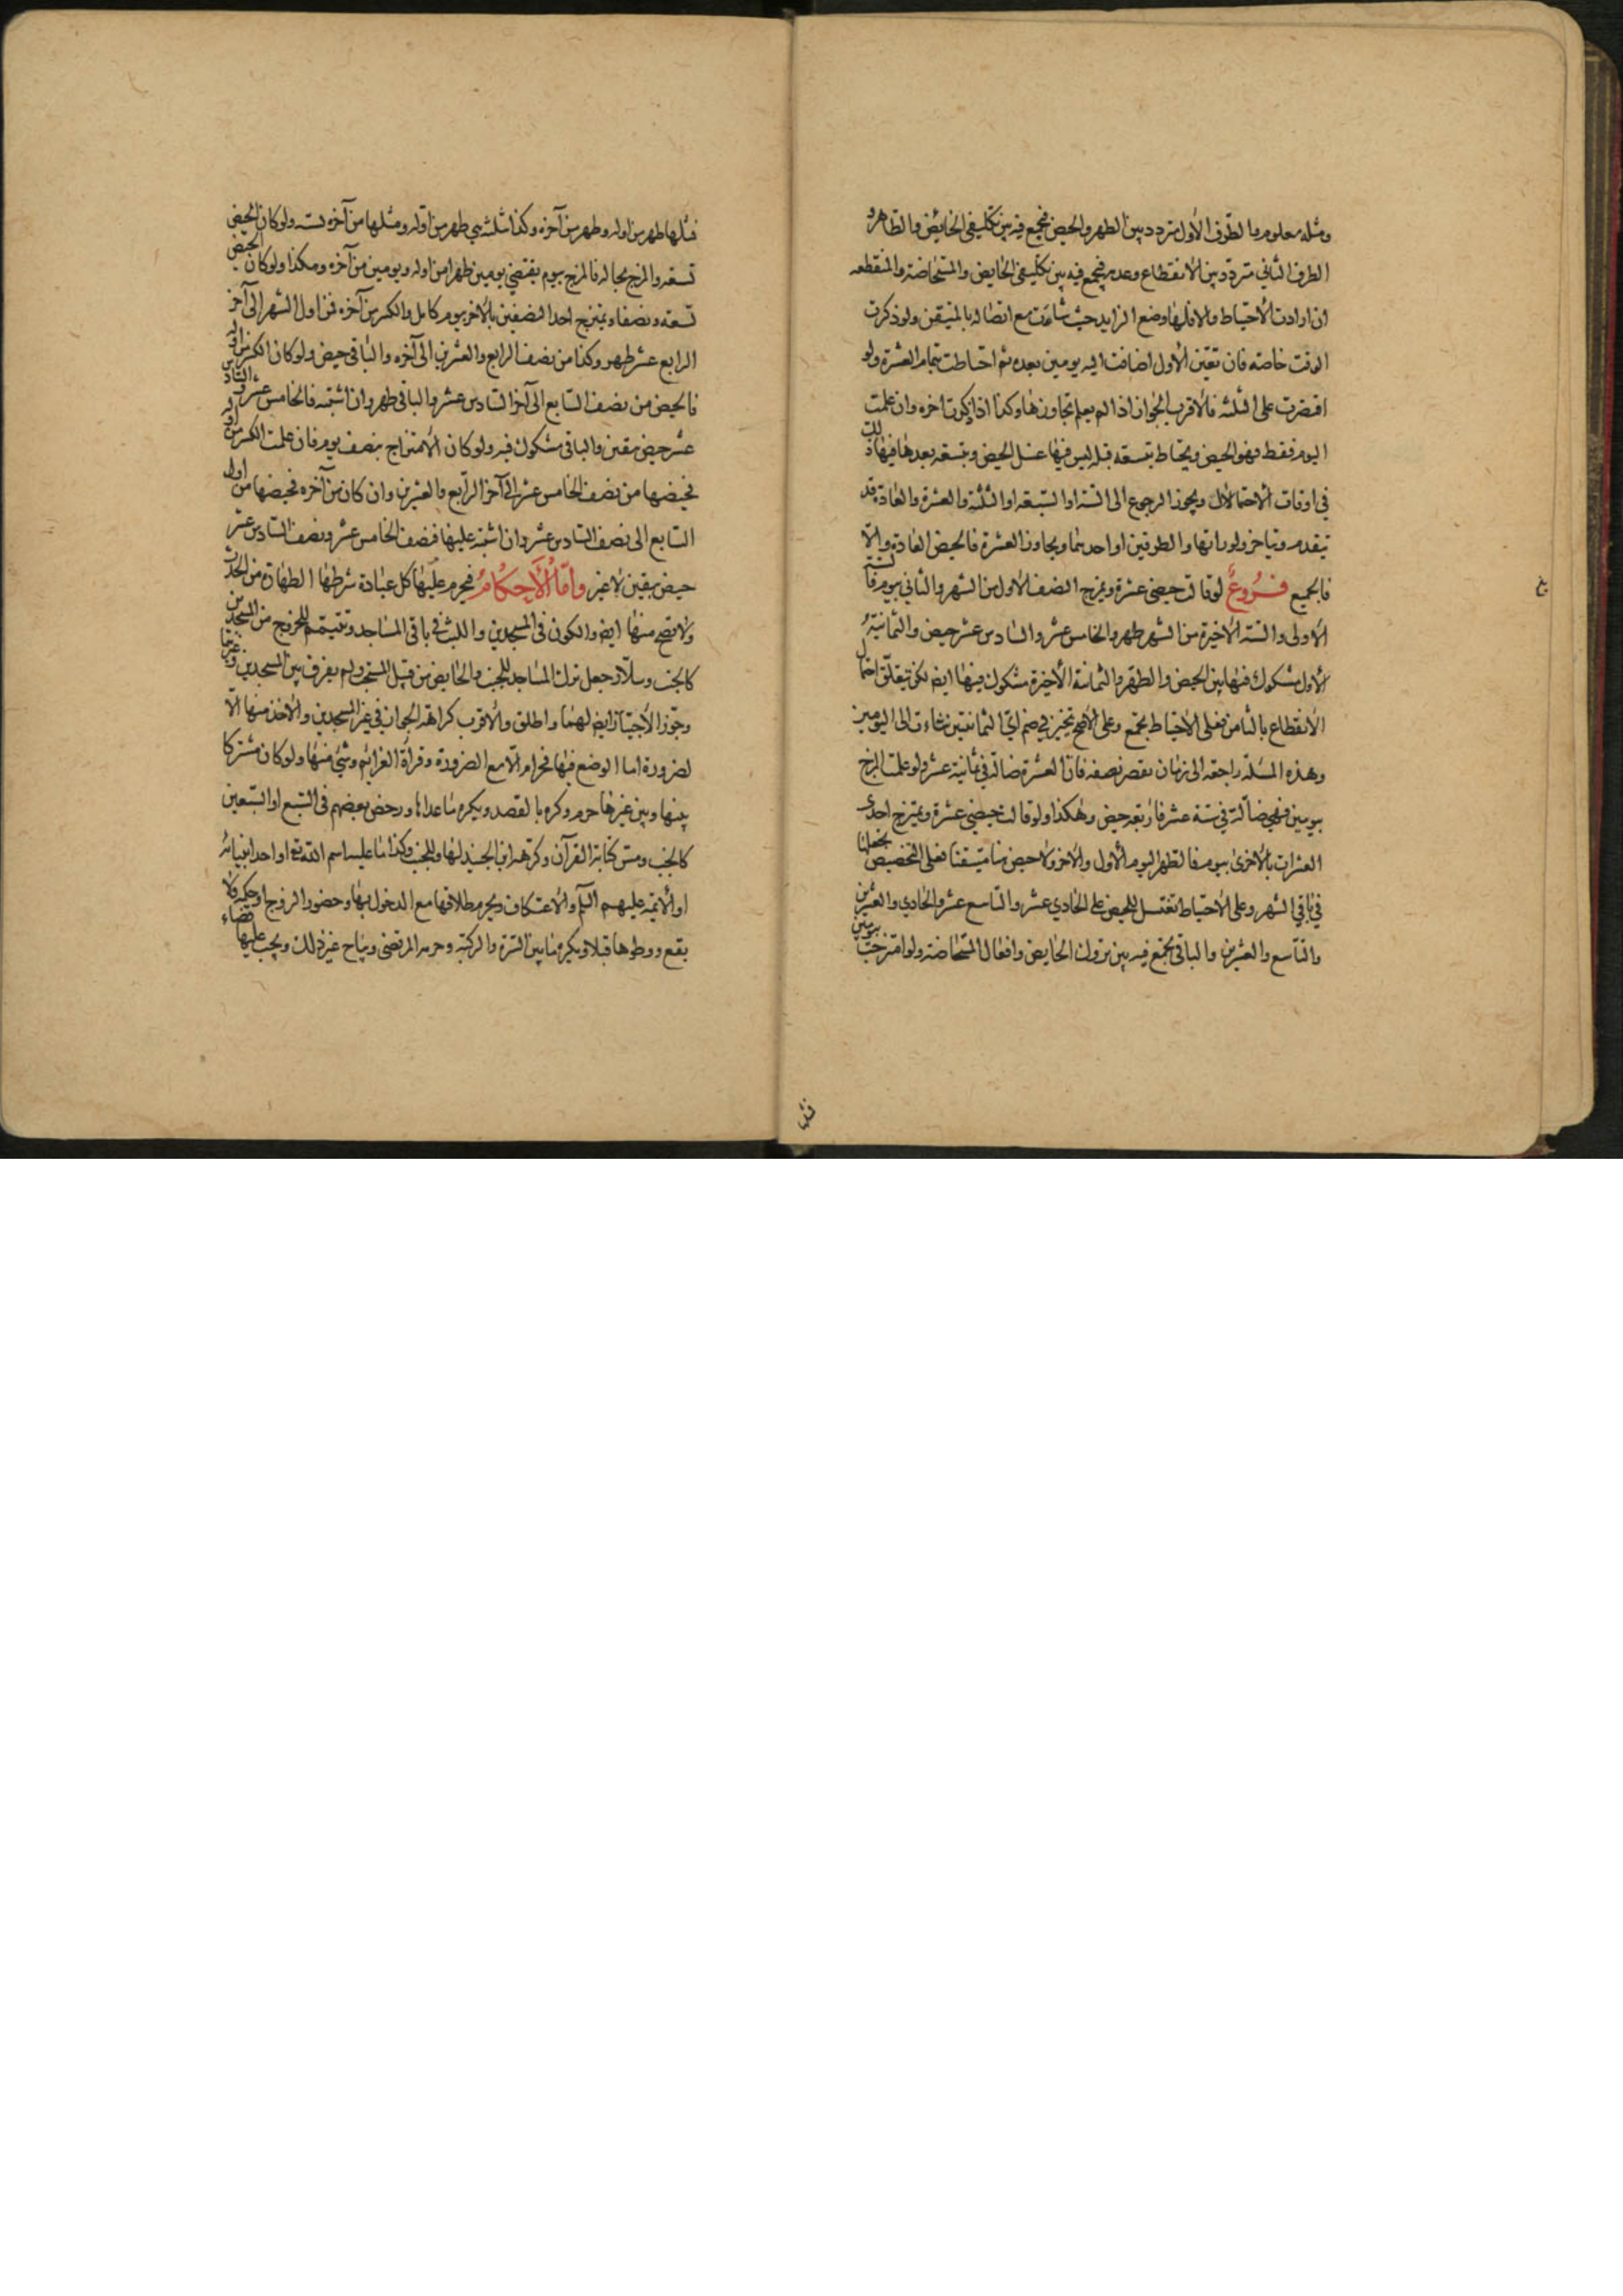 ومثله معلوم والطرف الأول متردد بين الطهر والحيض فيجمع فيه بين تكليفي الحائض والطاهر و
الطرف الثاني متردد بين الانقطاع وعدمه فيجمع فيه بين تكليفي الحايض والمستحاضة والمنقطعه
ان ارادت الاحتياط والا فلها وضع الزايد حيث شاءت مع اتصاله بالمتيقن ولو ذكرت
الوقت خاصه فان تعيّن الأول اضافت اليه يومين بعده ثم احتاطت بتمام العشرة ولو
اقتصرت على الثلثه فالاقرب الجواز اذا لم يعلم تجاوزها وكذا اذا ذكرت آخره وان علمت
اليوم فقط فهو الحيض ويحتاط بتسعه قبله ليس فيها غسل الحيض وبتسعه بعدها فيها ذلك
في اوقات الاحتمالات ويجوز الرجوع الى الستة او السبعه او الثلثة والعشرة والعادة قد
تتقدم وتتاخر ولو راتها والطرفين او احدهما ويجاوز العشرة فالحيض العادة والّا
فالجميع فروع لو قالت حيضي عشرة ويمزج النصف الاول من الشهر والثاني بيوم فالستة
الأولى والستة الأخيرة من الشهر طهر والخامس عشر والسادس عشر حيض والثمانية
الأول مشكوك فيها بين الحيض والطهر والثمانية الأخيرة مشكوك فيها ايض لكن يتعلق احتمال
الانقطاع بالثامن فعلى الاحتياط يجمع وعلى الاصح تخير في ضم ايّ الثمانيتين شاءت الى اليومين
وهذه المسئلة راجعه الى زمان يقصر نصفه فان العشرة ضالة في ثمانية عشر ولو علمت المزج
بيومين فهي ضالّة في ستة عشر فاربعه حيض وهكذا ولو قالت حيضي عشرة ويمتزج احدى
العشرات بالاخرى بيوم فالطهر اليوم الأول والاخر ولا حيض هنا متيقنا فعلى التخصيص تجعلها
في باقي الشهر وعلى الاحتياط تغتسل للحيض على الحادي عشر والتاسع عشر والحادي والعشرين
والتاسع والعشرين والباقي يجمع فيه بين تروك الحايض وافعال المستحاضة ولو امتزجت بيومين
فمثلها
فمثلها طهر من اوله وطهر من آخره وكذا ثلثه هي طهر من اوله ومثلها من آخره لسته ولو كان الحيض
تسعه والمزج بحاله فالمزج بيوم يقتضي يومين طهرا من اوله ويومين من آخره وهكذا ولو كان الحيض
تسعه ونصفا ويمتزج احد النصفين بالآخر بيوم كامل والكسر من آخره فمن اول الشهر الى آخر
الرابع عشر طهر وكذا من نصف الرابع والعشرين الى آخره والباقي حيض ولو كان الكسر من اوله
فالحيض من نصف السابع الى آخر السادس عشر والباقي طهر وان اشتبه فالخامس عشر والسادس
عشر حيض متيقن والباقي مشكوك فيه ولو كان الامتزاج بنصف يوم فان علمت الكسر من اوله
فحيضها من نصف الخامس عشر الى آخر الرابع والعشرين وان كان من آخره فحيضها من اول
السابع الى نصف السادس عشر وان اشتبه عليها فنصف الخامس عشر ونصف السادس عشر
حيض بيقين لا غير وأمّا الأحكامُ فيحرم عليها كل عبادة شرطها الطهارة من الحدث
ولا تصح منها ايض والكون في المسجدين واللبث في باقي المساجد وتتيمم للخروج من المسجدين
كالجنب وسلّار جعل ترك المساجد للجنب والحايض من قبيل المستحب ولم يفرق بين المسجدين وغيرهما
وجوّز الاجتياز ايض لهما واطلق والاقرب كراهة الجواز في غير المسجدين والاخذ منها الّا
لضرورة اما الوضع فيها فحرام الّا مع الضرورة وقراءة العزائم وشئ منها ولو كان مشتركا
بينها وبين غيرها حرم وكره بالقصد ويكره ما عداها ورخص بعضهم في السبع او السبعين
كالجنب ومس كتابة القرآن وكرهه ابن الجنيد لها وللجنب وكذا ما عليه اسم الله تع او احد انبيائه
او الأئمة عليهم السلم والاعتكاف ويحرم طلاقها مع الدخول بها وحضور الزوج او حكمه فلا
يقع ووطوها قبلا ويكره ما بين السرة والركبة وحرمه المرتضى ويباح غير ذلك ويجب عليها قضاء